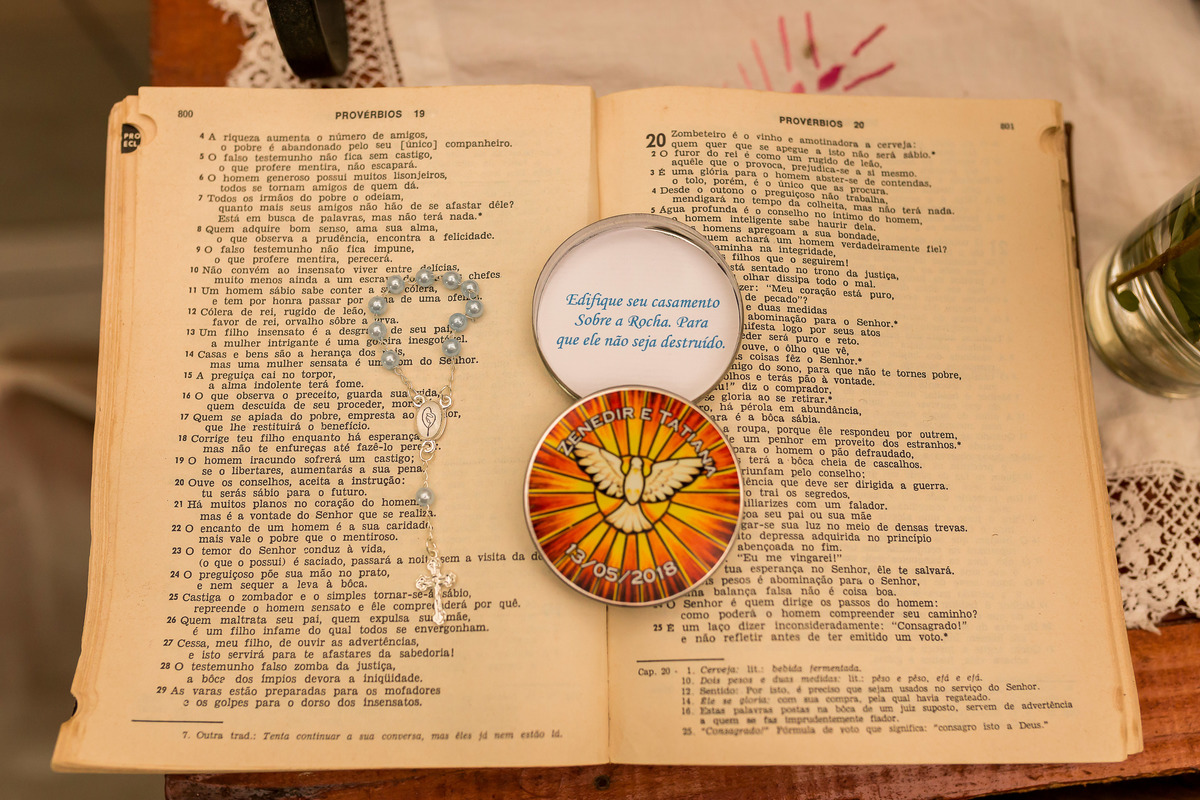 800
PROVÉRBIOS 19
PRO
ECL
4 A riqueza aumenta o número de amigos,
o pobre é abandonado pelo seu [único] companheiro.
5 O falso testemunho não fica sem castigo,
o que profere mentira, não escapará.
6 O homem generoso possui muitos lisonjeiros,
todos se tornam amigos de quem dá.
7 Todos os irmãos do pobre o odeiam,
quanto mais seus amigos não hão de se afastar dêle?
Está em busca de palavras, mas não terá nada.*
8 Quem adquire bom senso, ama sua alma,
o que observa a prudência, encontra a felicidade.
9 O falso testemunho não fica impune,
o que profere mentira, perecerá.
10 Não convém ao insensato viver entre delícias,
muito menos ainda a um chefes
11 Um homem sábio sabe conter a cólera,
e tem por honra passar por de uma
12 Cólera de rei, rugido de leão,
favor de rei, orvalho sôbre a
13 Um filho insensato é a de seu pai,
a mulher intrigante é uma
14 Casas e bens são a herança dos
mas uma mulher sensata é um do Senhor.
15 A preguiça cai no torpor,
a alma indolente terá fome.
16 O que observa o preceito, guarda sua vida,
quem descuida de seu proceder,
17 Quem se apiada do pobre, empresta ao
que lhe restituirá o benefício.
18 Corrige teu filho enquanto há esperança
mas não te enfureças até fazê-lo
19 O homem iracundo sofrerá um castigo;
se o libertares, aumentarás a sua pena.
20 Ouve os conselhos, aceita a instrução:
tu serás sábio para o futuro.
21 Há muitos planos no coração do homem
mas é a vontade do Senhor que se realiza.
22 O encanto de um homem é a sua caridade
mais vale o pobre que o mentiroso.
23 O temor do Senhor conduz à vida,
(o que o possui) é saciado, passará a sem a visita da
24 O preguiçoso põe sua mão no prato,
e nem sequer a leva à bôca.
25 Castiga o zombador e o simples tornar-se-á sábio,
repreende o homem sensato e êle compreenderá por quê.
26 Quem maltrata seu pai, quem expulsa sua mãe,
é um filho infame do qual todos se envergonham.
27 Cessa, meu filho, de ouvir as advertências,
e isto servirá para te afastares da sabedoria!
28 O testemunho falso zomba da justiça,
a bôce dos ímpios devora a iniqüidade.
29 As varas estão preparadas para os mofadores
e os golpes para o dorso dos insensatos.
7. Outra trad.: Tenta continuar a sua conversa, mas êles já nem estão lá.
PROVÉRBIOS 20
801
20 Zombeteiro é o vinho e amotinadora a cerveja:
quem quer que se apegue a isto não será sábio.*
2 O furor do rei é como um rugido de leão,
aquêle que o provoca, prejudica-se a si mesmo.
3 É uma glória para o homem abster-se de contendas,
o tolo, porém, é o único que as procura.
4 Desde o outono o preguiçoso não trabalha,
mendigará no tempo da colheita, mas não terá nada.
5 Água profunda é o conselho no íntimo do homem,
homem inteligente sabe haurir dela.
homens apregoam a sua bondade,
quem achará um homem verdadeiramente fiel?
caminha na integridade,
filhos que o seguirem!
está sentado no trono da justiça,
olhar dissipa todo o mal.
"Meu coração está puro,
de pecado"?
e duas medidas
abominação para o Senhor.*
manifesta logo por seus atos
será puro e reto.
ouve, o ôlho que vê,
coisas fêz o Senhor.*
amigo do sono, para que não te tornes pobre,
olhos e terás pão à vontade.
diz o comprador,
se gloria ao se retirar.*
há pérola em abundância,
é a bôca sábia.
a roupa, porque êle respondeu por outrem,
um penhor em proveito dos estranhos.*
para o homem o pão defraudado,
terá a bôca cheia de cascalhos.
triunfam pelo conselho;
que deve ser dirigida a guerra.
trai os segredos,
com um falador.
seu pai ou sua mãe
sua luz no meio de densas trevas.
depressa adquirida no princípio
abençoada no fim.
"Eu me vingarei!"
tua esperança no Senhor, êle te salvará.
pesos é abominação para o Senhor,
balança falsa não é coisa boa.
O Senhor é quem dirige os passos do homem:
como poderá o homem compreender seu caminho?
25 É um laço dizer inconsideradamente: "Consagrado!"
e não refletir antes de ter emitido um voto.*
Cap. 20 - 1. Cerveja: lit.: bebida fermentada.
10. Dois pesos e duas medidas: lit.: pêso e pêso, efá e efá.
12. Sentido: Por isto, é preciso que sejam usados no serviço do Senhor.
14. Ele se gloria: com sua compra, pela qual havia regateado.
16. Estas palavras postas na bôca de um juiz suposto, servem de advertência
a quem se faz imprudentemente fiador.
25. "Consagrado!" Fórmula de voto que significa: "consagro isto a Deus."
Edifique seu casamento
Sobre a Rocha. Para
que ele não seja destruído.
ZENEDIR E TATIANA
13/05/2018